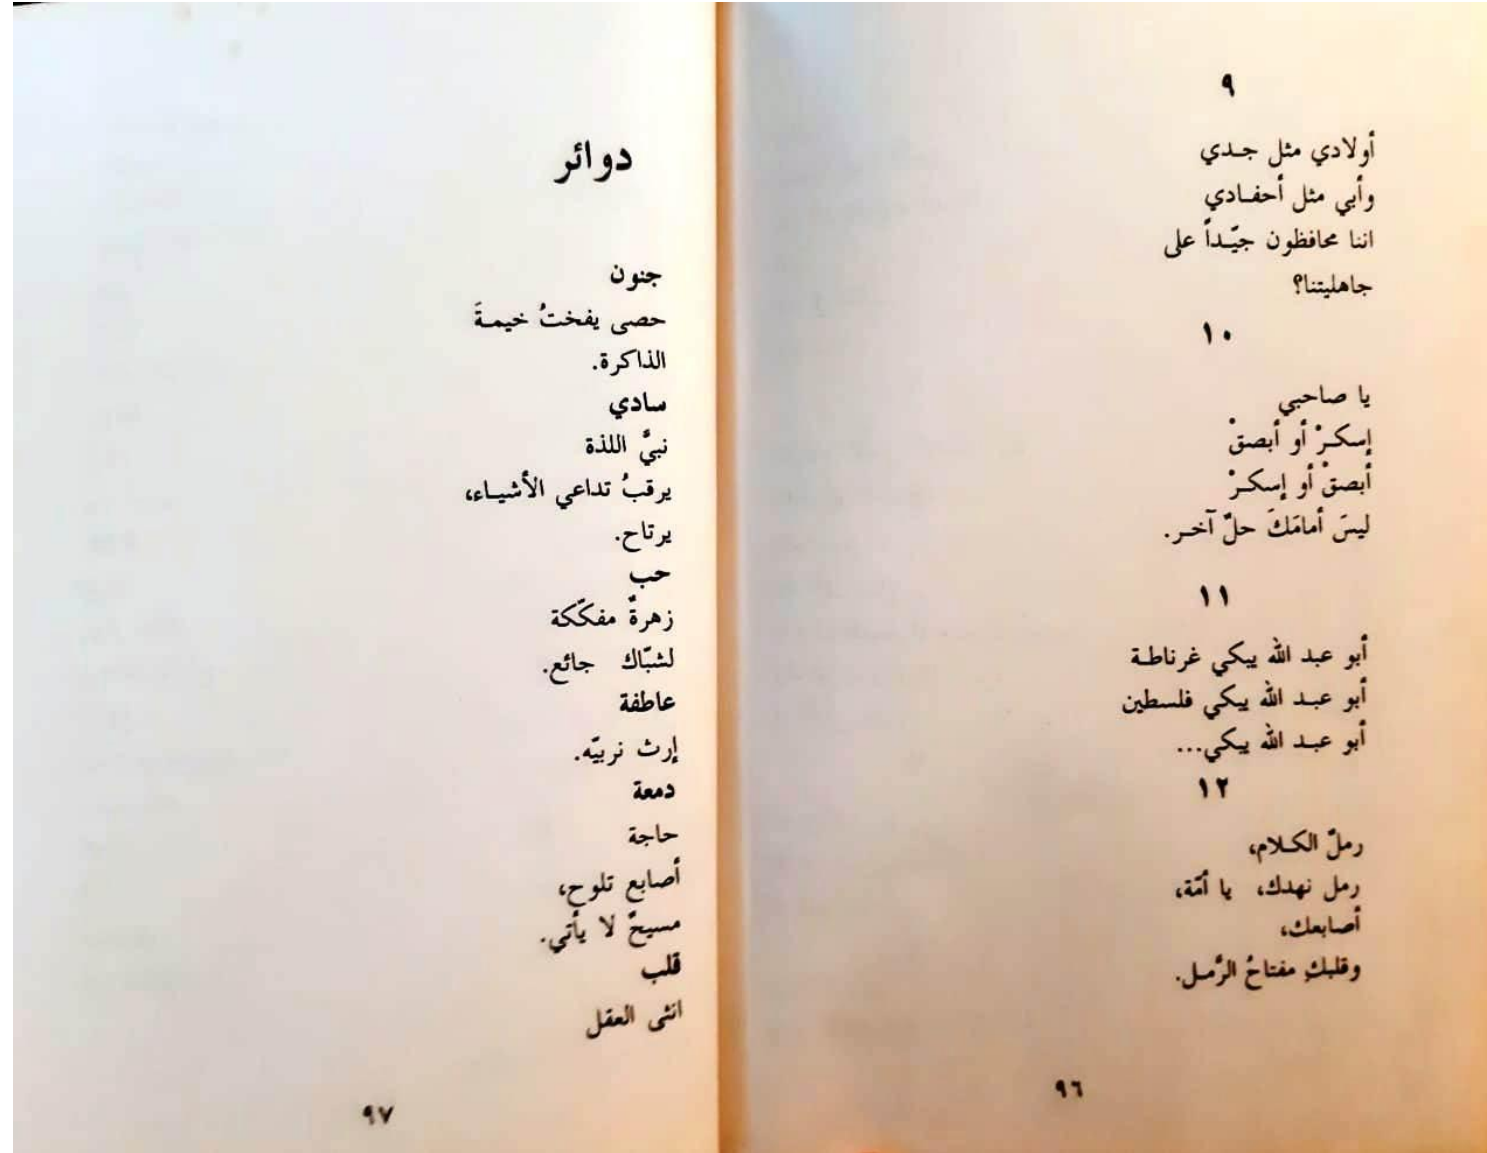 ٩
أولادي مثل جـدي
وأبي مثل أحفـادي
اننا محافظون جيّـداً على
جاهليتنا؟
١٠
يا صاحبي
إسكـرْ أو أبصقْ
أبصقْ أو إسكـرْ
ليسَ أمامَكَ حلٌ آخـر.
١١
أبو عبد الله يبكي غرناطـة
أبو عبـد الله يبكي فلسطين
أبو عبـد الله يبكي...
١٢
رملّ الكـلام،
رمل نهدك، يا أمّة،
أصابعك،
وقلبكِ مفتاحُ الرّمـل.
٩٦
دوائر
جنون
حصى يفختُ خيمـةَ
الذاكرة.
سادي
نبيُّ اللذة
يرقبُ تداعي الأشيـاء،
يرتاح.
حب
زهرةٌ مفكّكة
لشبّاك جائع.
عاطفة
إرث نربيّه.
دمعة
حاجة
أصابع تلوح،
مسيحٌ لا يأتي.
قلب
انثى العقل
٩٧